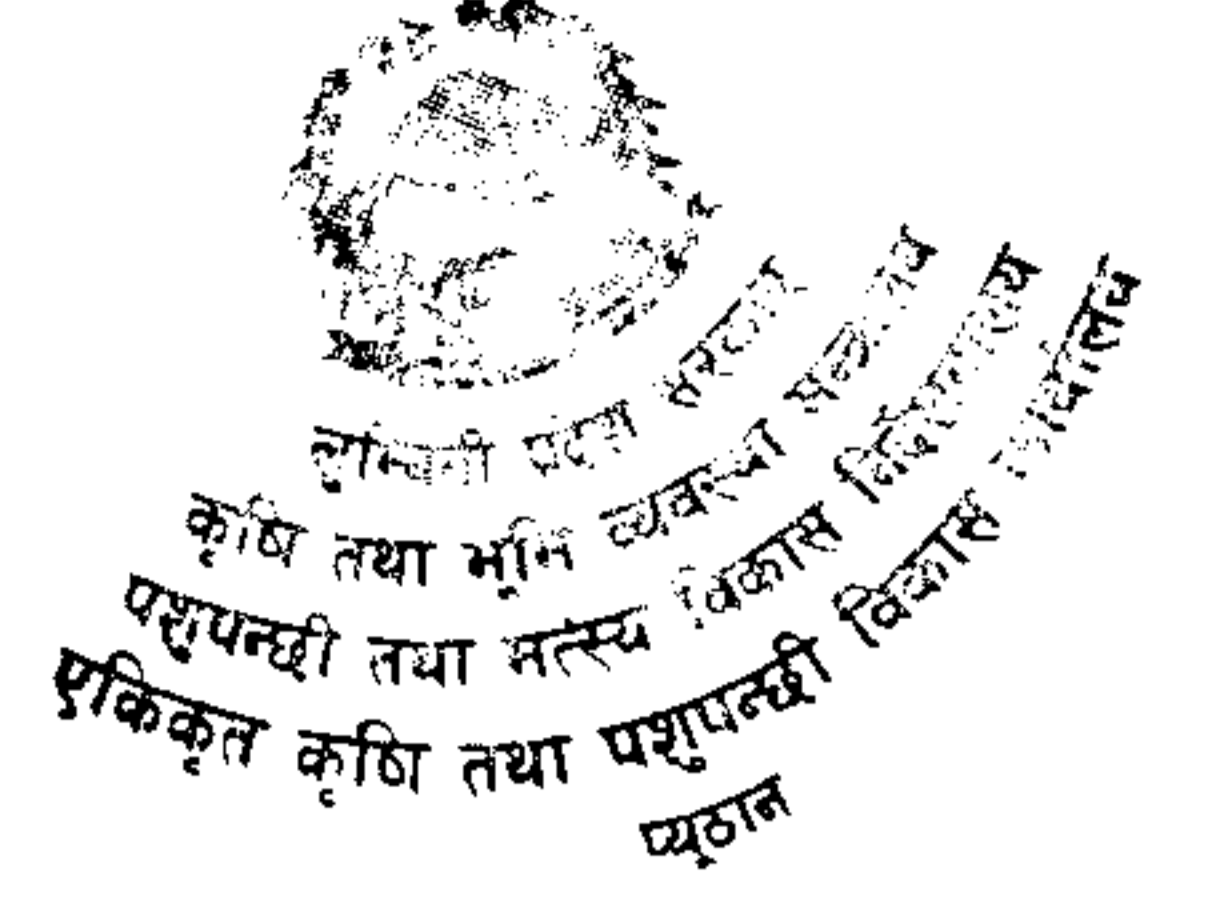 लुम्बिनी प्रदेश सरकार
कृषि तथा भूमि व्यवस्था मन्त्रालय
पशुपन्छी तथा मत्स्य विकास निर्देशनालय
एकिकृत कृषि तथा पशुपन्छी विकास कार्यालय
प्यूठान